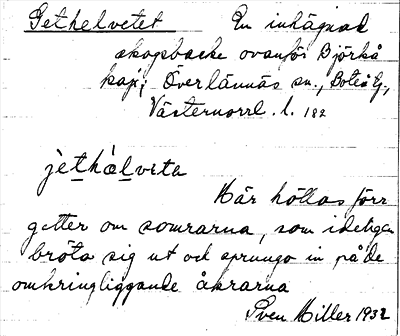 Gethelvetet En inhägnad
skogsbacke ovanför Björkå
kap; Överlännäs sn., Boteå tg.,
Västernorrl. l. 182
jèt̠hàl̠veta
Här höllos förr
getter om somrarna, som ideligen
bröto sig ut och sprungo in på de
omkringliggande åkrarna
Sven Miller 1932